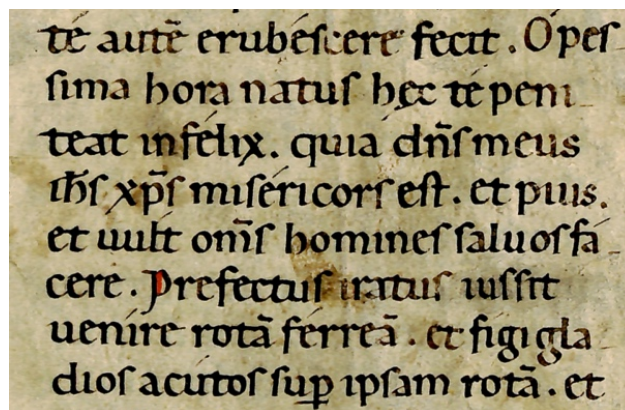 té autē erubescere fecit. O pes
sima hora natus hęc te peni
teat infelix. quia dn̄s meus
ih̄s xp̄s misericors est. et pius.
et uult om̄s homines saluos fa
cere. Prefectus iratus iussit
uenire rotā ferreā. et figi gla
dios acutos sup̱ ipsam rotā. et